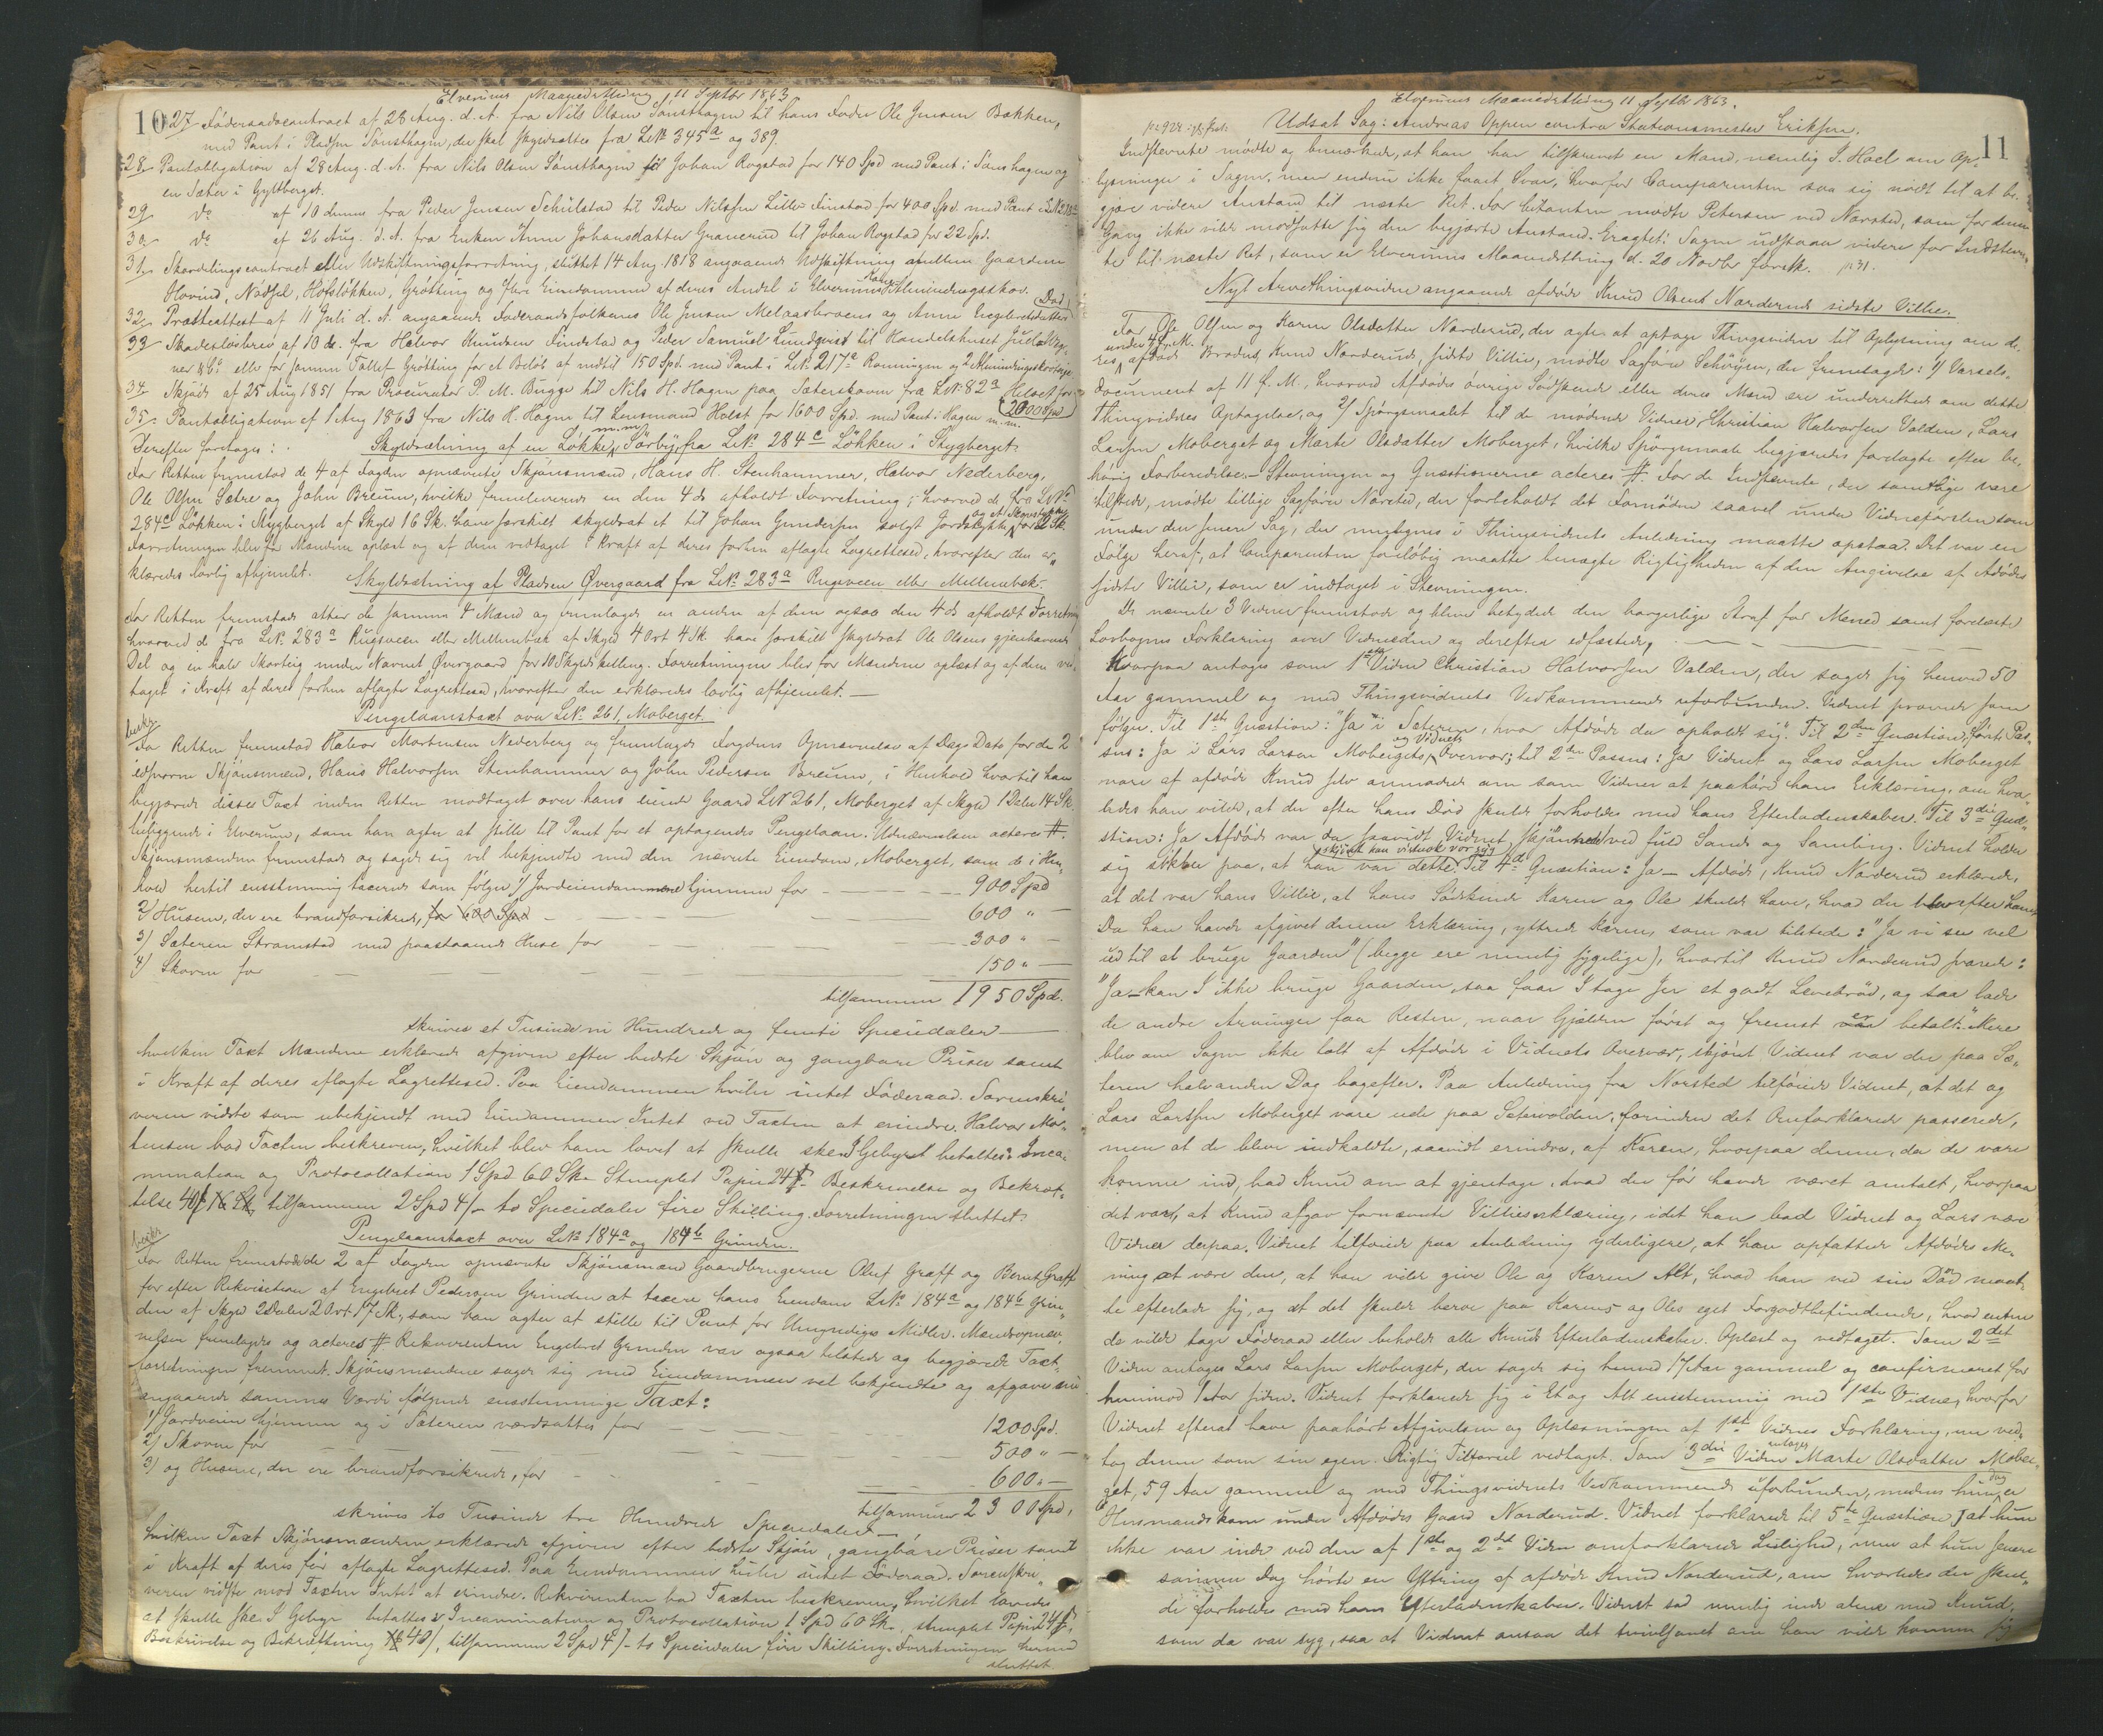 Elverums Maanedsthing 11 Septbr 1863
10
27/ Föderaadscontract af 28 Aug. d. A. fra Nils Olsen Sønsthagen til hans Fader Ole Jensen Bakken,
med Pant i Pladsen Sønsthagen, der skal skyldsættes fra LNo 345a og 389.
28. Pantobligation af 28 Aug. d. A. fra Nils Olsen Sønsthagen til Johan Rogstad for 140 Spd med Pant i Sønshagen og
en Sæter i Gyltberget.
29 do af 10 dennes fra Peder Jensen Schulstad til Peder Nilssen Lille Finstad for 400 Spd. med Pant i
30 do af 26 Aug. d. A. fra Enken Anne Johansdatter Granerud til Johan Rogstad for 22 Spd.
31 Skovdelingscontract eller Udskiftningsforretning, sluttet 14 Aug. 1818 angaaende Udskiftning mellem Gaardene
Hovind, Nødsel, Hofsløkken, Grøtting og flere Eiendomme af deres Andel i Elverums Almindingsskov.
32 Præsteattest af 11 Juli d. A. angaaende Føderaadsfolkenes Ole Jensen Melaasbraaens og Anne Engebretsdatters Død
33 Skadesløsbrev af 10 ds. fra Halvor Knudsen Findstad og Peder Samuel Lundqvist til Handelshuset Juell
ner & Co eller for samme Tollef Grøtting for et Beløb af indtil 150 Spd. med Pant i LNo 217a Rønningen og 2
34. Skjøde af 25 Aug 1851 fra Procurator P. M. Bugge til Nils H. Hagen paa Sæterskoven fra LNo 82a Helset for
2000 Spd
35 Pantobligation af 1 Aug 1863 fra Nils H. Hagen til Lensmand Holst for 1600 Spd. med Pant i Hagen m.m.
Derefter foretoges: Skyldsætning af en Løkke, Sørby, fra LNo 284c Løkken i Skygberget.
For Retten fremstod de 4 af Fogden opnævnte Skjønsmænd, Hans H. Stenhammer, Halvor Nederberg,
Ole Olsen Sætre og John Breum, hvilke fremleverede en den 4 ds afholdt Forretning, hvorved de fra LNo
284c Løkken i Skygberget af Skyld 16 Sk. have forskilt skyldsat et til Johan Gundersen solgt Jordstykke og et Skovstykke for 2 Sk
Forretningen blev for Mændene oplæst og af dem vedtaget i Kraft af deres forhen aflagte Lagrettesed, hvorefter den er-
klæredes lovlig afhjemlet.
Skyldsætning af Pladsen Øvergaard fra LNo 283a Rugsveen eller Mellembæk.
For Retten fremstode atter de samme 4 Mænd og fremlagde en anden af dem ogsaa den 4 ds afholdt Forretning
hvorved de fra LNo 283a Rugsveen eller Mellembæk af Skyld 4 Ort 4 Sk. have forskilt skyldsat Ole Olsens gjenhavende
Del og en halv Skovteig under Navnet Øvergaard for 10 Skyldskilling. Forretningen blev for Mændene oplæst og af dem ved-
taget i Kraft af deres forhen aflagte Lagrettesed, hvorefter den erklæredes lovlig afhjemlet. —
Pengelaanstaxt over LNo 261, Moberget.
beskr.
For Retten fremstod Halvor Mortensen Nederberg og fremlagde Fogdens Opnævnelse af Dags Dato for de 2
edsvorne Skjønsmænd, Hans Halvorsen Stenhammer og John Pedersen Breum, i Henhold hvortil han
begjærede disses Taxt inden Retten modtaget over hans eiende Gaard LNo 261, Moberget af Skyld 1 Daler 14 Sk.
beliggende i Elverum, som han agter at stille til Pant for et optagendes Pengelaan. Udnævnelsen acteres #.
Skjønsmændene fremstode og sagde sig vel bekjendte med den nævnte Eiendom, Moberget, som de i Hen-
hold hertil eenstemmig taxerede som følger 1/ Jordeiendommene hjemme for — 900 Spd
2/ Husene, der ere brandforsikrede, for 600 Spd — 600 " —
3/ Sæteren Strømstad med paastaaende Huse for — 300 " —
4/ Skoven for — 150 " —
tilsammen 1950 Spd.
skrives et Tusinde ni Hundrede og femti Speciedaler —
hvilken Taxt Mændene erklærede afgiven efter bedste Skjøn og gangbare Priser samt
i Kraft af deres aflagte Lagrettesed. Paa Eiendommen hviler intet Føderaad. Sorenskri-
veren vidste som ubekjendt med Eiendommen Intet ved Taxten at erindre. Halvor Mor-
tensen bad Taxten beskreven, hvilket blev ham lovet at skulle ske. I Gebyr betaltes: Inca-
mination og Protocollation 1 Spd 60 Sk. Stemplet Papir 24 β. Beskrivelse og Bekræf-
telse 40 β tilsammen 2 Spd 4 β to Speciedaler fire Skilling. Forretningen sluttet.
Pengelaanstaxt over LNo 184a og 184b Grinden.
beskr.
For Retten fremstod de 2 af Fogden opnævnte Skjønsmænd Gaardbrugerne Oluf Grøff og Bernt Grøff
for efter Rekvisition af Engebret Pedersen Grinden at taxere hans Eiendom LNo 184a og 184b Grin-
den af Skyld 2 Daler 2 Ort 17 Sk., som han agter at stille til Pant for Umyndiges Midler. Mændsopnæv-
nelsen fremlagdes og acteres # Rekvirenten Engebret Grinden var ogsaa tilstede og begjærede Taxt-
forretningen fremmet. Skjønsmændene sagde sig med Eiendommen vel bekjendte og afgave nu
angaaende sammes Værdi følgende eenstemmige Taxt:
1/ Jordveien hjemme og i Sæteren værdsattes for — 1200 Spd.
2/ Skoven for — 500 " —
3/ og Husene, der ere brandforsikrede, for — 600 " —
tilsammen 2300 Spd,
skrives to Tusinde tre Hundrede Speciedaler —
hvilken Taxt Skjønsmændene erklærede afgiven efter bedste Skjøn, gangbare Priser samt
i Kraft af deres før aflagte Lagrettesed. Paa Eiendommen hviler intet Føderaad. Sorenskri-
veren vidste mod Taxten Intet at erindre. Rekvirenten bad Taxten beskreven, hvilket lovedes
at skulle ske. I Gebyr betaltes: Incamination og Protocollation 1 Spd 60 Sk., stemplet Papir 24 β,
Beskrivelse og Bekræftning 40 β, tilsammen 2 Spd 4 β to Speciedaler fire Skilling. Forretningen hermed
sluttet.
Elverums Maanedsthing 11 Septbr 1863.
11
Udsat Sag: Andreas Oppen contra Stationsmester Eriksen.
Indstevnte mødte og bemærkede, at han har tilskrevet en Mand, nemlig J. Hoel om Op-
lysninger i Sagen, men endnu ikke faaet Svar, hvorfor Comparenten saa sig nødt til at be-
gjære videre Anstand til næste Ret. For Citanten mødte Petersen ved Norsted, som for denne
Gang ikke vilde modsætte sig den begjærte Anstand. Eragtet: Sagen udstaaer videre for Indstevn-
te til næste Ret, som er Elverums Maanedsthing d. 20 Novbr førstk. p 31.
Nyt Arvethingsvidne angaaende afdøde Knud Olsens Norderuds sidste Villie.
For Ole Olsen og Karen Olsdatter Norderud, der agte at optage Thingsvidne til Oplysning om de-
res, under 4 f. M. afdøde Broder, Knud Norderuds, sidste Villie, mødte Sagfører Schøyen, der fremlagde: 1/ Varsels-
document af 11 f. M., hvorved Afdødes øvrige Sødskende eller deres Mænd ere underrettede om dette
Thingsvidnes Optagelse, og 2/ Spørgsmaalet til de mødende Vidner, Christian Halvorsen Valden, Lars
Larsen Moberget og Marte Olsdatter Moberget, hvilke Spørgsmaale begjæredes forelagte efter be-
hørig Forberedelse. Stevningen og Qvæstionerne acteres #. For de Indstevnte, der samtlige vare
tilstede, mødte tillige Sagfører Norsted, der forbeholdt det Fornødne saavel under Vidneførslen som
under den senere Sag, der muligens i Thingsvidnets Anledning maatte opstaa. Det var en
Følge heraf, at Comparenten foreløbig maatte benægte Rigtigheden af den Angivelse af Afdødes
sidste Villie, som er indtaget i Stevningen.
De nævnte 3 Vidner fremstode og bleve betydede den borgerlige Straf for Meneed samt forelæste
Lovbogens Forklaring over Vidneeden og derefter edfæstede, —
Hvorpaa antoges som 1ste Vidne Christian Halvorsen Valden, der sagde sig henved 50
Aar gammel og med Thingsvidnets Vedkommende uforbunden. Vidnet provede som
følger. Til 1ste Qvæstion: "Ja" i Sæteren, hvor Afdøde da opholdt sig". Til 2den Qvæstion, første Pas-
sus: Ja i Lars Larsen Mobergets og Vidnets Overvær; til 2den Passus: Ja Vidnet og Lars Larsen Moberget
vare af afdøde Knud selv anmodede om som Vidner at paahøre hans Erklæring, om hvor-
ledes han vilde, at der efter hans Død skulde forholdes med hans Efterladenskaber. Til 3die Qvæ-
stion: Ja Afdøde var da saavidt Vidnet skjønnede ved fuld Sands og Samling. Vidnet holder
sig sikker paa, at han var dette, skjønt han vidstnok var syg. Til 4de Qvæstion: Ja — Afdøde, Knud Norderud erklærede,
at det var hans Villie, at hans Sødskende Karen og Ole skulde have, hvad der blev efter ham
Da han havde afgivet denne Erklæring, yttrede Karen, som var tilstede: "Ja vi see vel
ud til at bruge Gaarden" (begge ere nemlig sygelige), hvortil Knud Norderud svarede:
"Ja — kan I ikke bruge Gaarden, saa faar I tage Jer et godt Levebrød, og saa lade
de andre Arvinger faa Resten, naar Gjælden først og fremst er betalt." Mere
blev om Sagen ikke talt af Afdøde i Vidnets Overvær, skjønt Vidnet var der paa Sæ-
teren halvanden Dag bagefter. Paa Anledning fra Norsted tilføiede Vidnet, at det og
Lars Larsen Moberget vare ude paa Sætervolden, forinden det Omforklarede passerede,
men at de bleve indkaldte, saavidt erindres, af Karen, hvorpaa denne, da de vare
komne ind, bad Knud om at gjentage, hvad der før havde været omtalt, hvorpaa
det var, at Knud afgav fornævnte Villieserklæring, idet han bad Vidnet og Lars være
Vidner derpaa. Vidnet tilføiede paa Anledning yderligere, at han opfattede Afdødes Me-
ning at være den, at han vilde give Ole og Karen Alt, hvad han ved sin Død maat-
te efterlade sig, og at det skulde beroe paa Karens og Oles eget Forgodtbefindende, hvad enten
de vilde tage Føderaad eller beholde alle Knuds Efterladenskaber. Oplæst og vedtaget. Som 2det
Vidne antoges Lars Larsen Moberget, der sagde sig henved 17 Aar gammel og confirmeret for
henimod 1 Aar siden. Vidnet forklarede sig i Et og Alt eenstemmig med 1ste Vidne, hvorfor
Vidnet efterat have paahørt Afgivelsen og Oplæsningen af 1ste Vidnes Forklaring, nu ved-
tog denne som sin egen. Rigtig Tilførsel vedtaget. Som 3die Vidne antoges Marte Olsdatter Mober-
get, 59 Aar gammel og med Thingsvidnets Vedkommende uforbunden, medens hun dog er
Husmandskone under Afdødes Gaard Norderud. Vidnet forklarede til 5te Qvæstion, at hun
ikke var inde ved den af 1ste og 2det Vidne omforklarede Leilighed, men at hun senere
samme Dag hørte en Yttring af afdøde Knud Norderud, om hvorledes der skul-
de forholdes med hans Efterladenskaber. Vidnet sad nemlig inde alene med Knud,
som da var syg, saa at Vidnet ansaa det tvivlsomt om han vilde komme sig